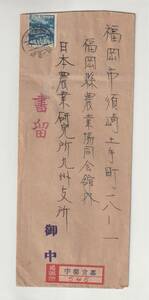 福岡市須崎土手町一八ノ一
福岡縣農業協同会館内
日本農業研究所九州支所
御中
書留
宇都宮基